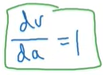 dv/da = 1